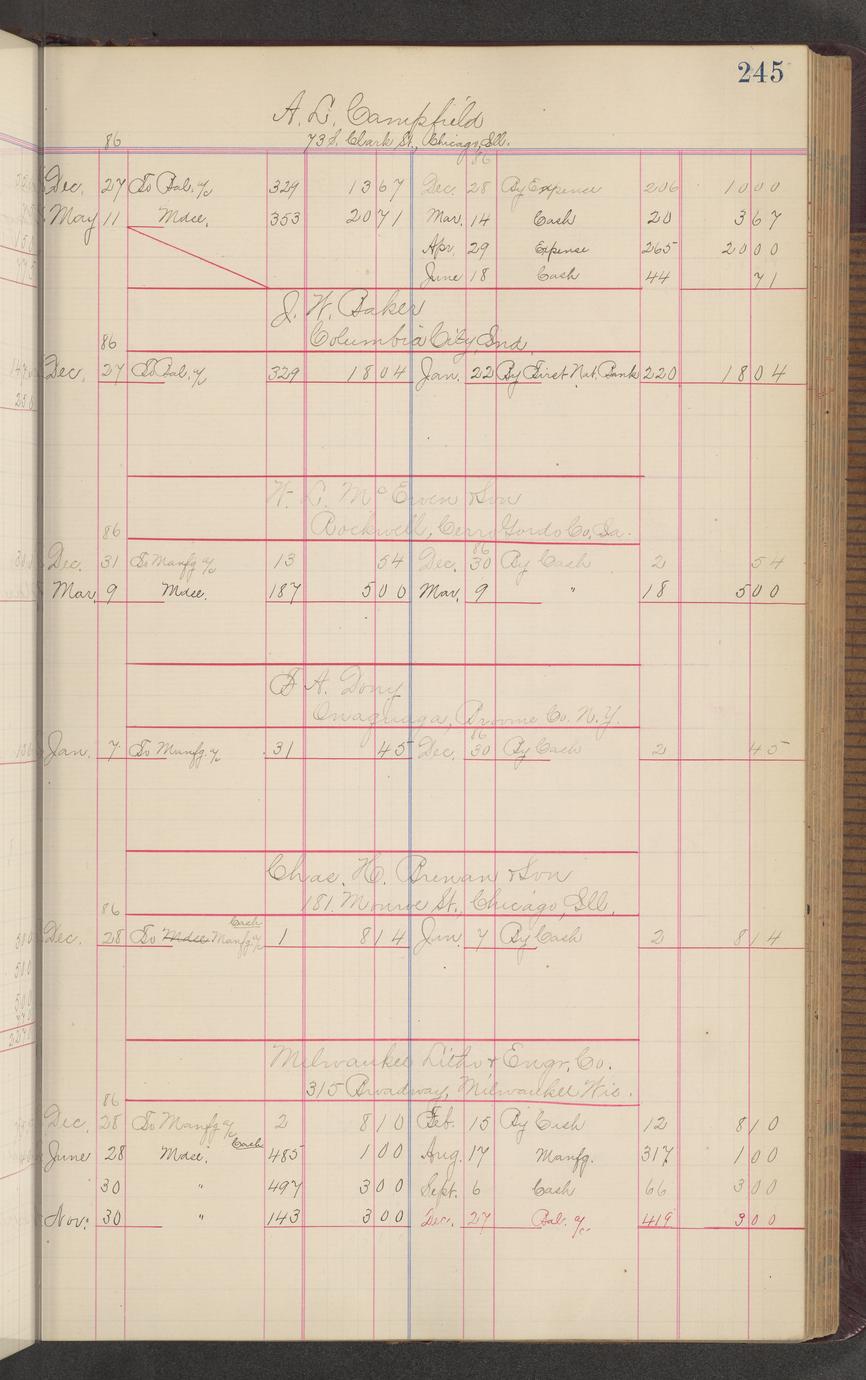 245
A. L. Campfield
86 73 S. Clark St., Chicago, Ill.
86
Dec. 27 To Bal. a/c 329 13 67 Dec. 28 By Expense 206 10 00
May 11 Mdse. 353 20 71 Mar. 14 Cash 20 3 67
Apr. 29 Expense 265 20 00
June 18 Cash 44 71
J. W. Baker
86 Columbia City, Ind.
Dec. 27 To Bal. a/c 329 18 04 Jan. 22 By First Nat. Bank 220 18 04
W. L. McEwen & Son
86 Rockwell, Cerro Gordo Co., Ia.
86
Dec. 31 To Manfg a/c 13 54 Dec. 30 By Cash 2 54
Mar. 9 Mdse. 187 5 00 Mar. 9 " 18 5 00
A. Dony
Onaquaga, Broome Co. N.Y.
86
Jan. 7 To Manfg. a/c 31 45 Dec. 30 By Cash 2 45
Chas. H. Brenan & Son
86 181 Monroe St., Chicago, Ill.
Cash
Dec. 28 To Mdse Manfg a/c 1 8 14 Jan. 7 By Cash 2 8 14
Milwaukee Litho & Engr. Co.
86 315 Broadway, Milwaukee Wis.
Dec. 28 To Manfg a/c 2 8 10 Feb. 15 By Cash 12 8 10
June 28 Mdse. Cash 485 1 00 Aug. 17 Manfg. 317 1 00
30 " 497 3 00 Sept. 6 Cash 66 3 00
Nov. 30 " 143 3 00 Dec. 27 Bal. a/c 419 3 00